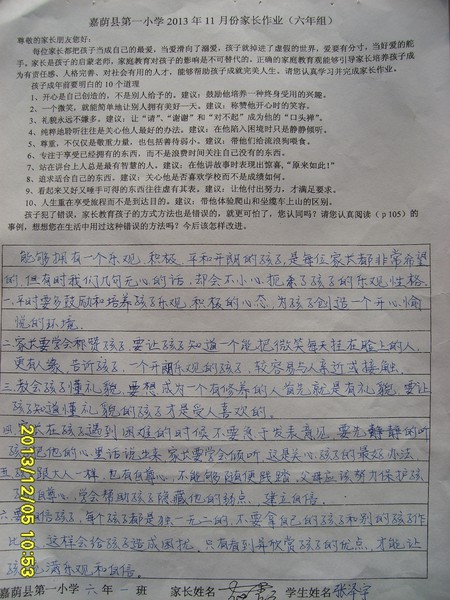 嘉荫县第一小学 2013 年 11 月份家长作业（六年组）
尊敬的家长朋友您好：
每位家长都把孩子当成自己的最爱，当爱滑向了溺爱，孩子就掉进了虚假的世界。爱要有分寸，当好爱的舵
手。家长是孩子的启蒙老师，家庭教育对孩子的影响是不可替代的。正确的家庭教育观能够引导家长培养孩子成
为有责任感、人格完善、对社会有用的人才，能够帮助孩子成就完美人生。请您认真学习并完成家长作业。
孩子成年前要明白的 10 个道理
1、开心是自己创造的，不是别人给予的。建议：鼓励他培养一种终身受用的兴趣。
2、一个微笑，就能简单地让别人拥有美好一天。建议：称赞他开心时的笑容。
3、礼貌永远不嫌多。建议：让“请”、“谢谢”和“对不起”成为他的“口头禅”。
4、纯粹地聆听往往是关心他人最好的办法。建议：在他陷入困境时只是静静倾听。
5、尊重，不仅仅是敬重力量，也包括善待弱小。建议：带他们给流浪狗喂食。
6、专注于享受已经拥有的东西，而不是浪费时间关注自己没有的东西。
7、站在讲台上人总是最有智慧的人。建议：在他讲故事时表现出惊喜，“原来如此！”
8、追求适合自己的东西。建议：关心他是否喜欢学校而不是成绩如何。
9、看起来又好又唾手可得的东西往往虚有其表。建议：让他付出努力，才满足要求。
10、人生重在享受旅程而不是到达目的。建议：带他体验爬山和坐缆车上山的区别。
孩子犯了错误，家长教育孩子的方式方法也是错误的，就更可怕了，您认同吗？请您认真阅读（p105）的事
例，想想您在生活中用过这种错误的方法吗？今后该怎样改进。
能够拥有一个乐观、积极、平和开朗的孩子，是每位家长都非常希望
的，但有时我们几句无心的话，却会不小心扼杀了孩子的乐观性格。
一、平时要多鼓励和培养孩子乐观、积极的心态，为孩子创造一个开心愉
悦的环境。
二、家长要学会称赞孩子，要让孩子知道一个能把微笑每天挂在脸上的人，
更有人缘，告诉孩子，一个开朗乐观的孩子，较容易与人亲近或接触。
三、教会孩子懂礼貌，要想成为一个有修养的人首先就是有礼貌，要让
孩子知道懂礼貌的孩子才是受人喜欢的。
四、家长在孩子遇到困难的时候不要急于发表意见，要先静静的听
孩子把他的心里话说出来，家长要学会倾听，这是关心孩子的最好办法。
五、孩子跟大人一样，也有自尊心，不能够随便践踏，父母应该努力保护孩
子的自尊心，学会帮助孩子隐藏他的弱点，建立自信。
六、要相信孩子，每个孩子都是独一无二的，不要拿自己的孩子和别的孩子作
比，这样会给孩子造成困扰，只有看到并欣赏孩子的优点，才能让
孩子充满乐观和自信。
嘉荫县第一小学 六 年 一 班 家长姓名 学生姓名 张泽宇
2013/12/05 10:53